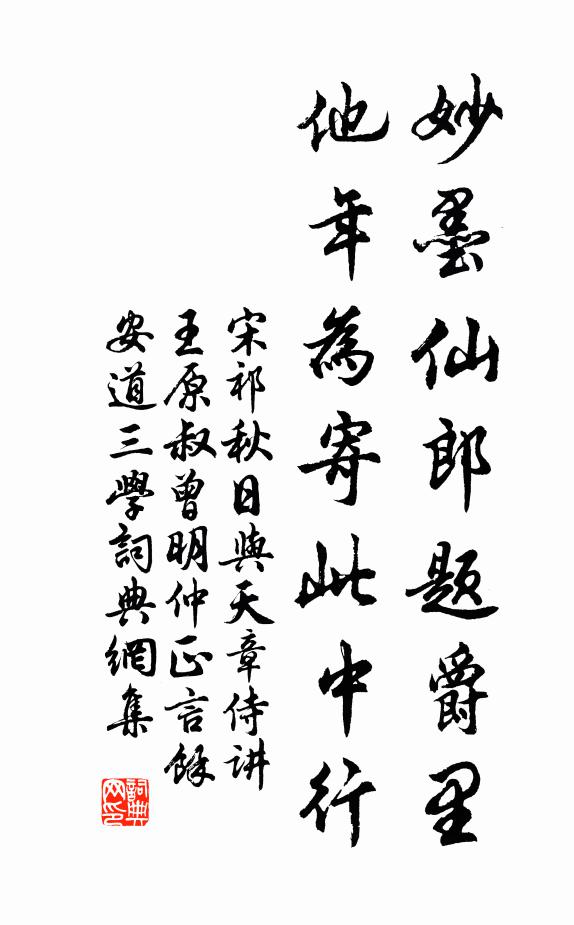 妙墨仙郎题爵里
他年為寄此中行
宋祁秋日與天章侍讲
王原叔曾明仲正言餘
安道三學詞典網集
詞典
网